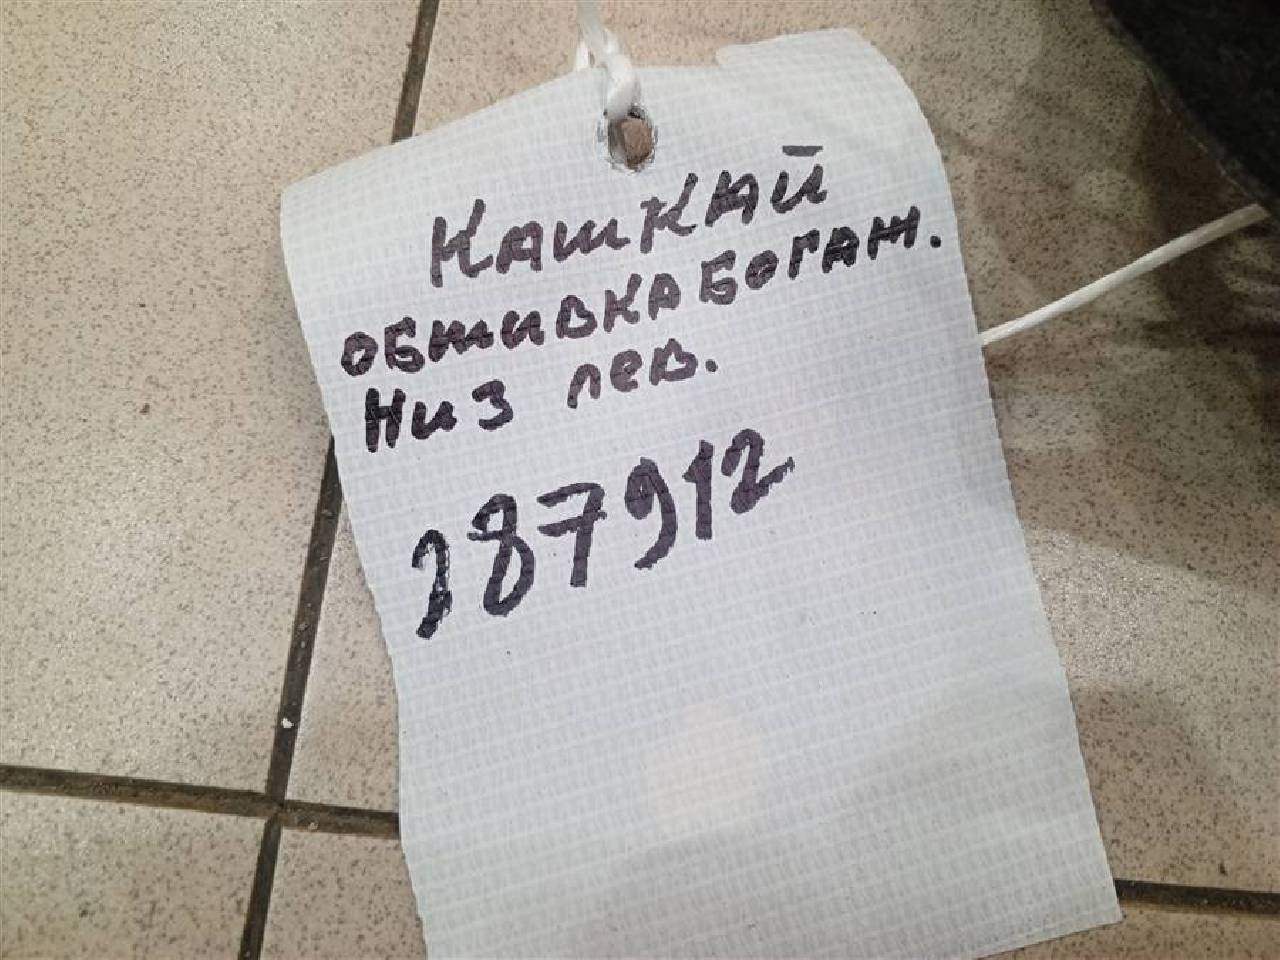 Кашкай
обшивка богаж.
Низ лев.
287912